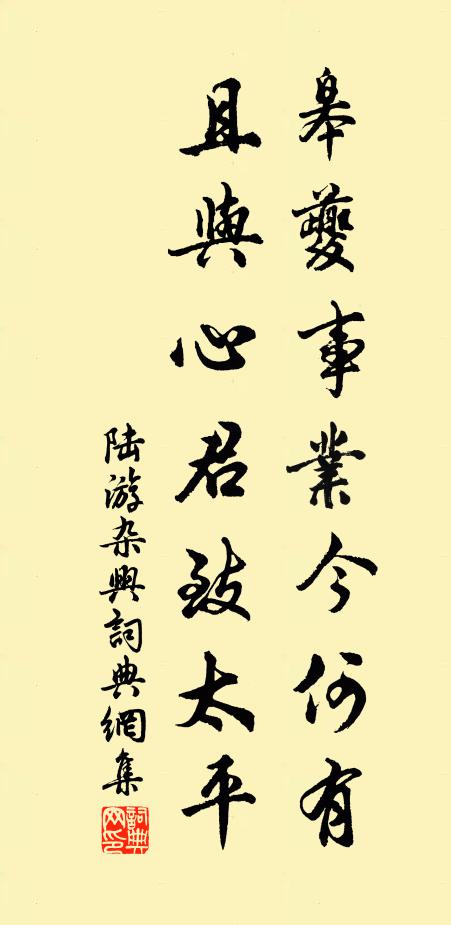 皋夔事業今何有
且與心君致太平
陆游杂興詞典網集
詞典网印